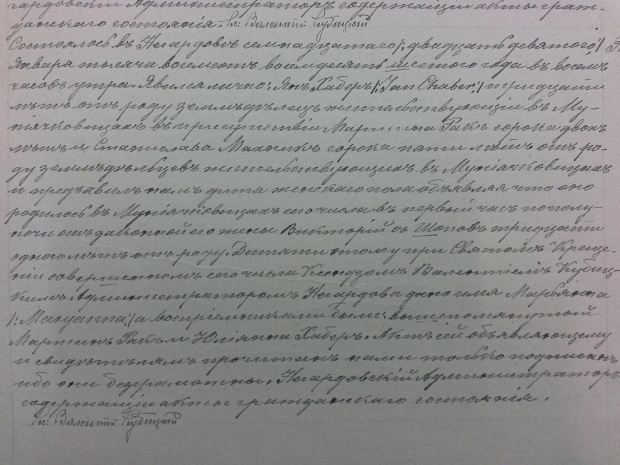 гардовскій Администраторъ содержащій акты граж-
данскаго состоянія. Кс: Валентій Кубицкій
Состоялось въ Негардовѣ семнадцатаго /: двадцать девятого /
Января тысяча восемсотъ восемдесятъ шестого года въ восемъ
часовъ утра. Явился лично: Янъ Хаберъ /: Jan Chaber :/ тридцати
лѣтъ отъ роду земледѣлецъ жительствующій въ
въ присутствіи Мартина Ракъ сорока двохъ
лѣтъ и Станислава сорока пяти лѣтъ отъ ро-
ду земледѣльцевъ жительствующихъ въ
и предъявилъ намъ дитя женскаго пола объявляя что оно
родилось въ сего числа въ первый часъ по полу-
ночи отъ законной его жены Викторіи съ тридцати
одного лѣтъ отъ роду. Дитяти этому при Святомъ Креще-
ніи совершонномъ сего числа Ксендзомъ Валентіемъ Кубиц-
кимъ Администраторомъ Негардова дано имя Марьянна
/: Maryanna :/ а воспріемниками были: вышепомянутый
Мартинъ Ракъ и Юліянна Хаберъ. Актъ сей объявляющему
и свидѣтелямъ прочитанъ нами только подписанъ
ибо они безграмотны. Негардовскій Администраторъ
содержащій акты гражданскаго состоянія.
Кс: Валентій Кубицкій